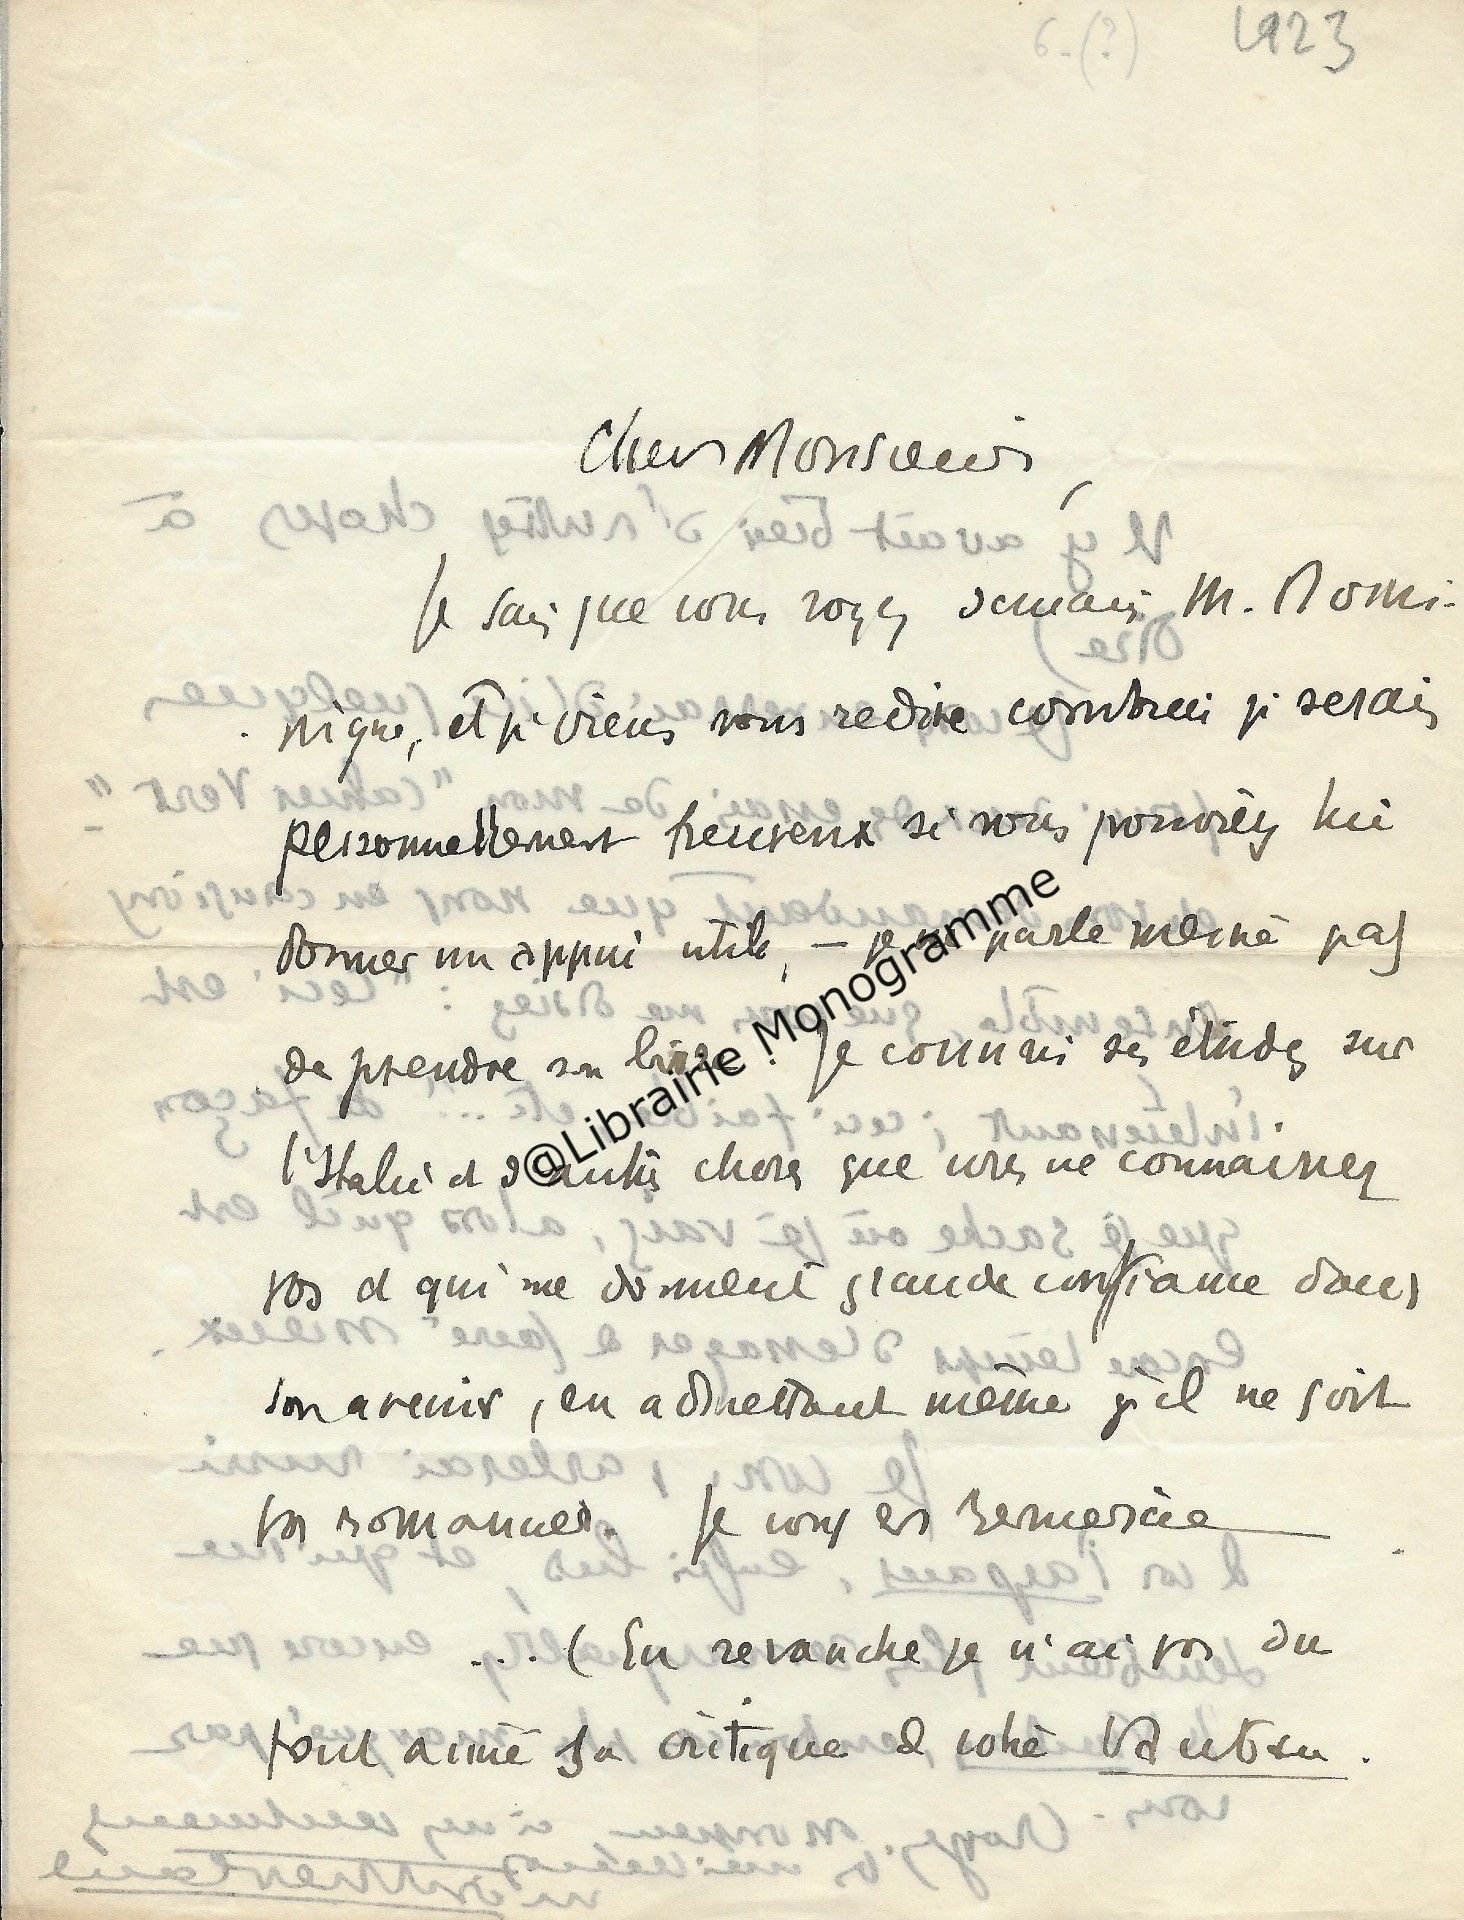 1923
Cher Monsieur,
Je sais que vous voyez demain M. Domi-
nique, et je viens vous redire combien je serais
personnellement heureux si vous pouviez lui
donner un appui utile, — je ne parle même pas
de prendre son livre. Je connais ses études sur
l'Italie et d'autres choses que vous ne connaissez
pas et qui me donnent grande confiance dans
son avenir, en admettant même qu'il ne soit
pas romancier. Je vous en remercie
... (En revanche je n'ai pas du
tout aimé sa critique de votre Vautrin.
@Librairie Monogramme